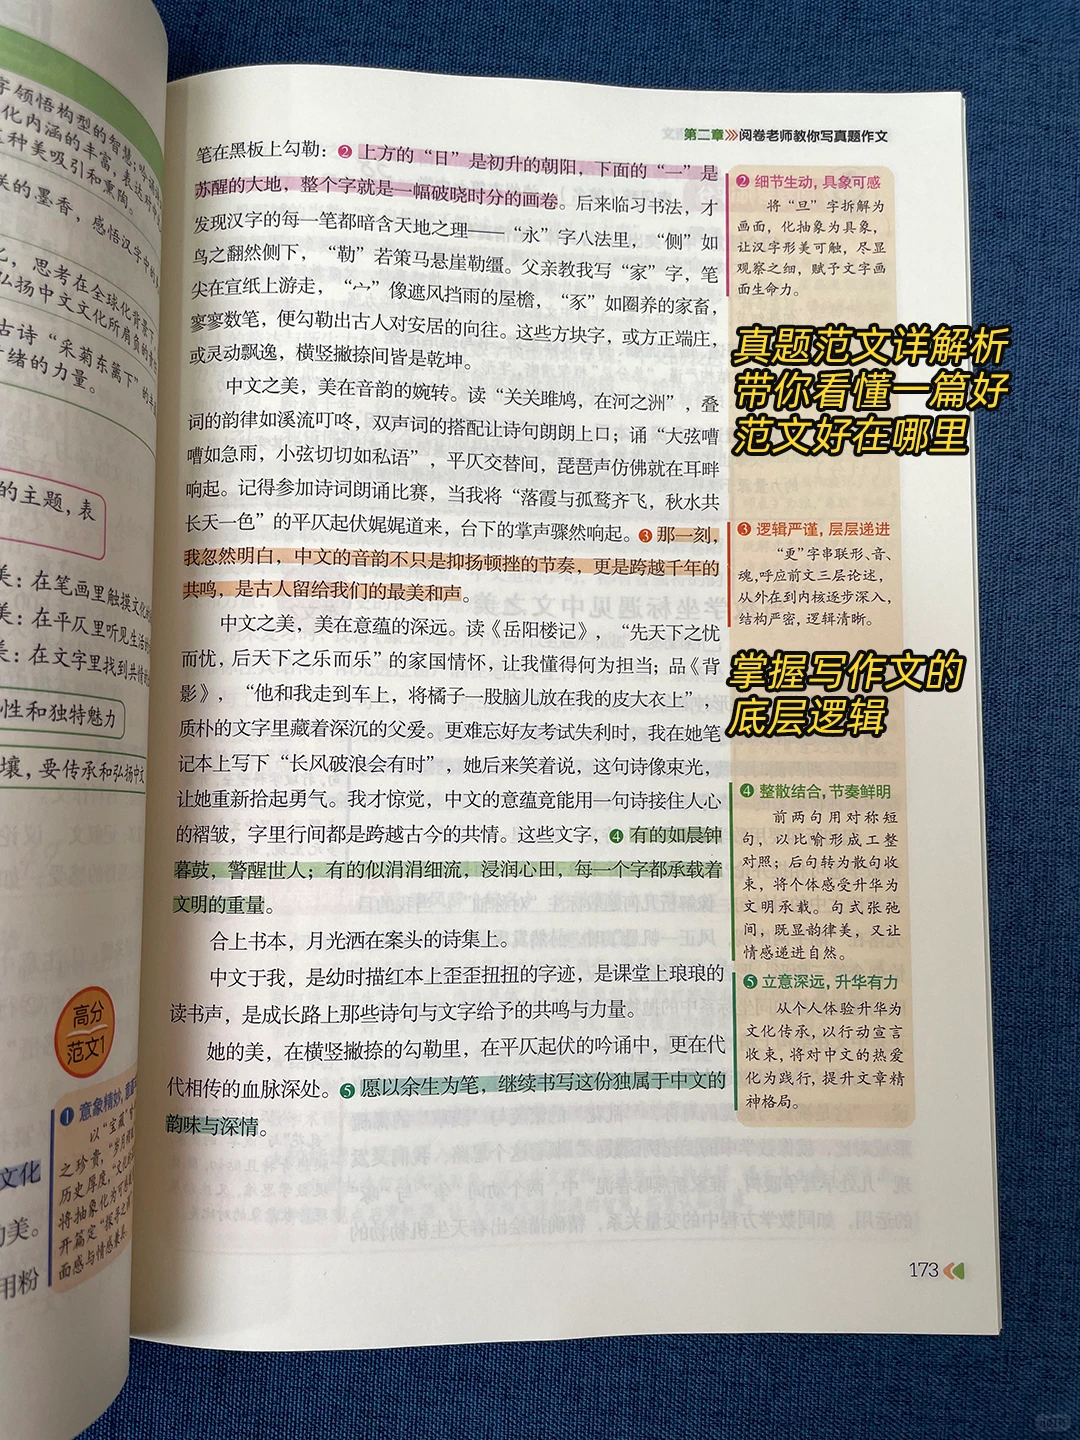 第二章 阅卷老师教你写真题作文
笔在黑板上勾勒：❷上方的“日”是初升的朝阳，下面的“一”是
苏醒的大地，整个字就是一幅破晓时分的画卷。后来临习书法，才
发现汉字的每一笔都暗含天地之理——“永”字八法里，“侧”如
鸟之翻然侧下，“勒”若策马悬崖勒缰。父亲教我写“家”字，笔
尖在宣纸上游走，“宀”像遮风挡雨的屋檐，“豕”如圈养的家畜，
寥寥数笔，便勾勒出古人对安居的向往。这些方块字，或方正端庄，
或灵动飘逸，横竖撇捺间皆是乾坤。
中文之美，美在音韵的婉转。读“关关雎鸠，在河之洲”，叠
词的韵律如溪流叮咚，双声词的搭配让诗句朗朗上口；诵“大弦嘈
嘈如急雨，小弦切切如私语”，平仄交替间，琵琶声仿佛就在耳畔
响起。记得参加诗词朗诵比赛，当我将“落霞与孤鹜齐飞，秋水共
长天一色”的平仄起伏娓娓道来，台下的掌声骤然响起。❸那一刻，
我忽然明白，中文的音韵不只是抑扬顿挫的节奏，更是跨越千年的
共鸣，是古人留给我们的最美和声。
中文之美，美在意蕴的深远。读《岳阳楼记》，“先天下之忧
而忧，后天下之乐而乐”的家国情怀，让我懂得何为担当；品《背
影》，“他和我走到车上，将橘子一股脑儿放在我的皮大衣上”，
质朴的文字里藏着深沉的父爱。更难忘好友考试失利时，我在她笔
记本上写下“长风破浪会有时”，她后来笑着说，这句诗像束光，
让她重新拾起勇气。我才惊觉，中文的意蕴竟能用一句诗接住人心
的褶皱，字里行间都是跨越古今的共情。这些文字，❹有的如晨钟
暮鼓，警醒世人；有的似涓涓细流，浸润心田，每一个字都承载着
文明的重量。
合上书本，月光洒在案头的诗集上。
中文于我，是幼时描红本上歪歪扭扭的字迹，是课堂上琅琅的
读书声，是成长路上那些诗句与文字给予的共鸣与力量。
她的美，在横竖撇捺的勾勒里，在平仄起伏的吟诵中，更在代
代相传的血脉深处。❺愿以余生为笔，继续书写这份独属于中文的
韵味与深情。
❷ 细节生动，具象可感
将“旦”字拆解为
画面，化抽象为具象，
让汉字形美可触，尽显
观察之细，赋予文字画
面生命力。
真题范文详解析
带你看懂一篇好
范文好在哪里
❸ 逻辑严谨，层层递进
“更”字串联形、音、
魂，呼应前文三层论述，
从外在到内核逐步深入，
结构严密，逻辑清晰。
掌握写作文的
底层逻辑
❹ 整散结合，节奏鲜明
前两句用对称短
句，以比喻形成工整
对照；后句转为散句收
束，将个体感受升华为
文明承载。句式张弛
间，既显韵律美，又让
情感递进自然。
❺ 立意深远，升华有力
从个人体验升华为
文化传承，以行动宣言
收束，将对中文的热爱
化为践行，提升文章精
神格局。
173
字领悟构型的智慧；吟诵
化内涵的丰富，表达
种美吸引和熏陶。
美的墨香，感悟汉字中的
，思考在全球化背景
弘扬中文文化所肩负的责任
古诗“采菊东篱下”的
绪的力量。
的主题，表
美：在笔画里触摸文化的
美：在平仄里听见生活的
美：在文字里找到共情
性和独特魅力
壤，要传承和弘扬中文
高分
范文1
❶ 意象精妙，意蕴
以“宝藏”
之珍贵，“岁月
历史厚度，“文化
将抽象化为可
开篇定“探寻之
面感与情感兼具。
文化
的美。
用粉